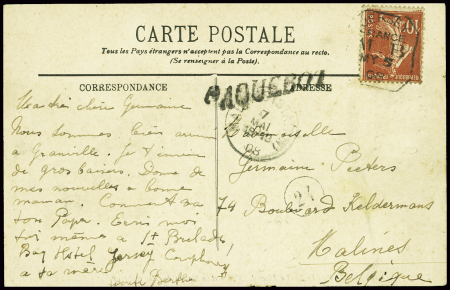 CARTE POSTALE
Tous les Pays étrangers n'acceptent pas la Correspondance au recto.
(Se renseigner à la Poste).
CORRESPONDANCE
ADRESSE
PAQUEBOT
7
MAI
08
10
21
Ma chère Germaine
Nous sommes bien
à Granville. Je t'envoie
de gros baisers. Donne de
mes nouvelles a bonne
maman. Comment va
ton Papa. Ecris moi
toi même à St Brelade,
Bay Hotel Jersey
Mademoiselle
Germaine Peeters
74 Boulevard Keldermans
Malines
Belgique